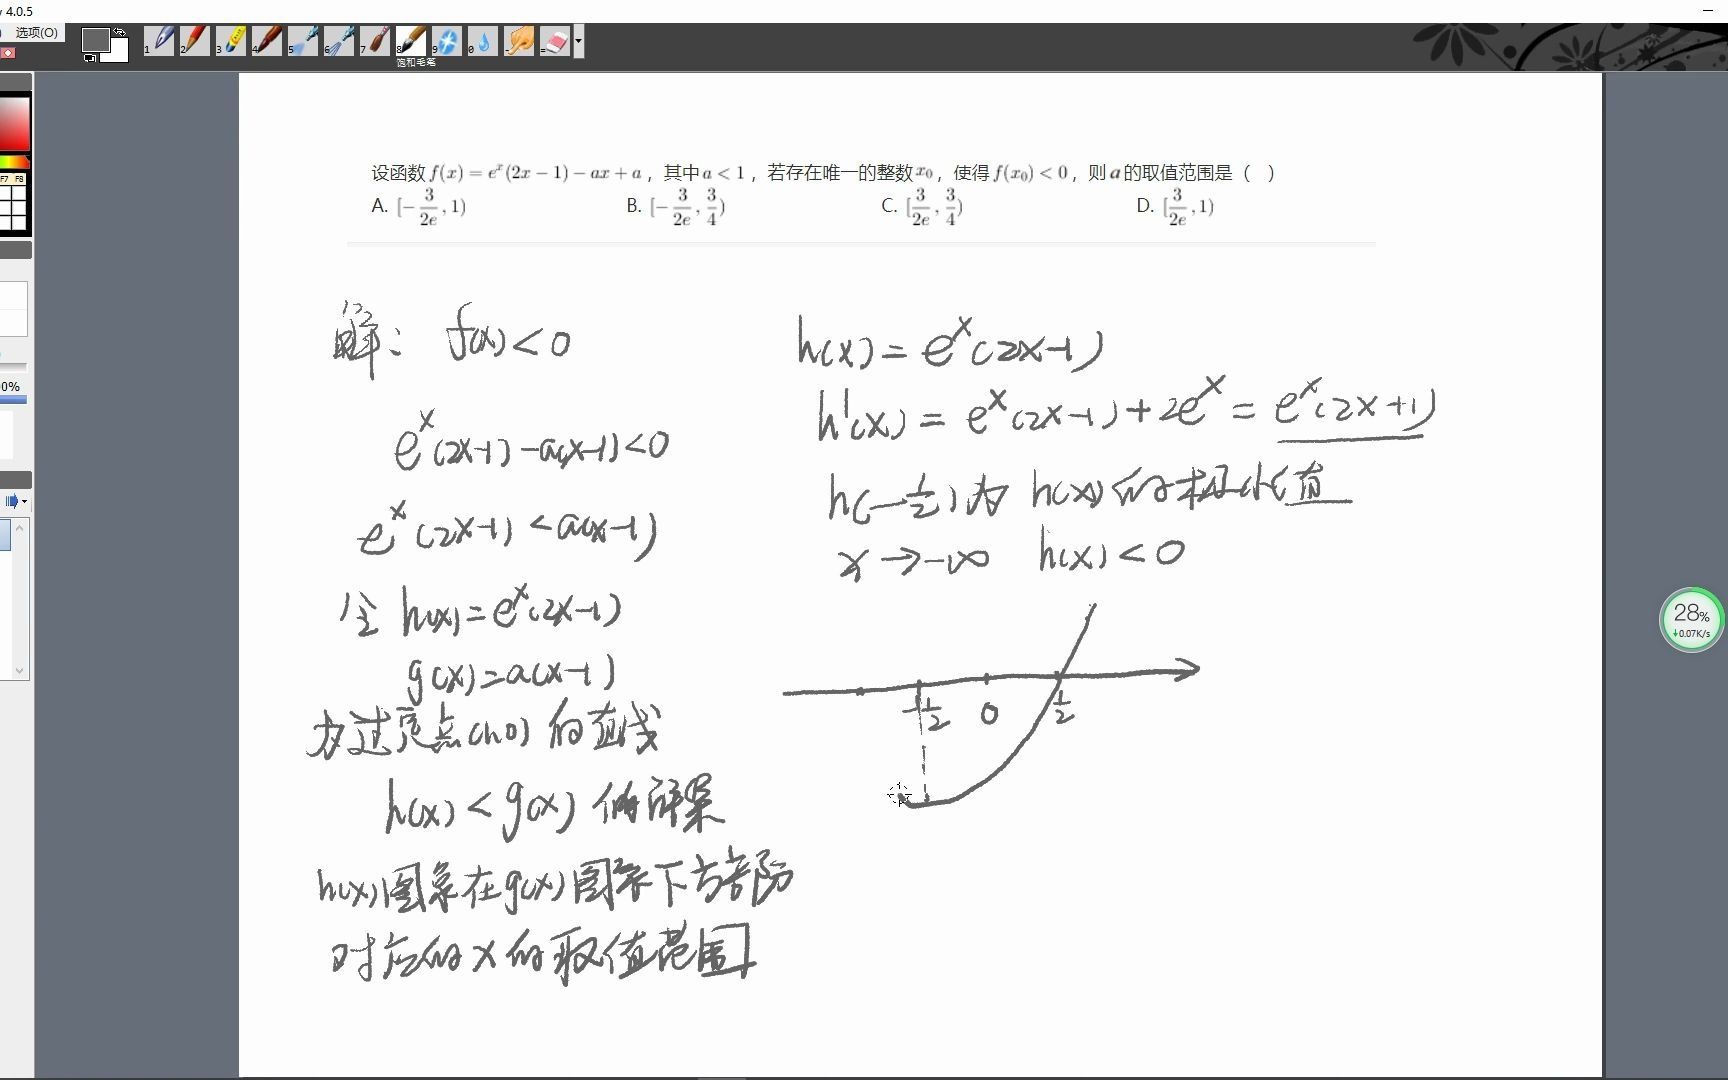 4.0.5
选项(O)
1 2 3 4 5 6 7 8 9 0 - =
饱和毛笔
F7 F8
0%
设函数 f(x) = e^x(2x − 1) − ax + a，其中 a < 1，若存在唯一的整数 x₀，使得 f(x₀) < 0，则 a 的取值范围是（ ）
A. [−3/2e, 1) B. [−3/2e, 3/4) C. [3/2e, 3/4) D. [3/2e, 1)
解: f(x) < 0
e^x(2x−1) − a(x−1) < 0
e^x(2x−1) < a(x−1)
令 h(x) = e^x(2x−1)
g(x) = a(x−1)
为过定点(1,0)的直线
h(x) < g(x) 的解集
h(x)图象在g(x)图象下方部分
对应的x的取值范围
h(x) = e^x(2x−1)
h'(x) = e^x(2x−1) + 2e^x = e^x(2x+1)
h(−1/2)为h(x)的极小值
x → −∞ h(x) < 0
−1/2 0 1/2
28%
↓0.07K/s